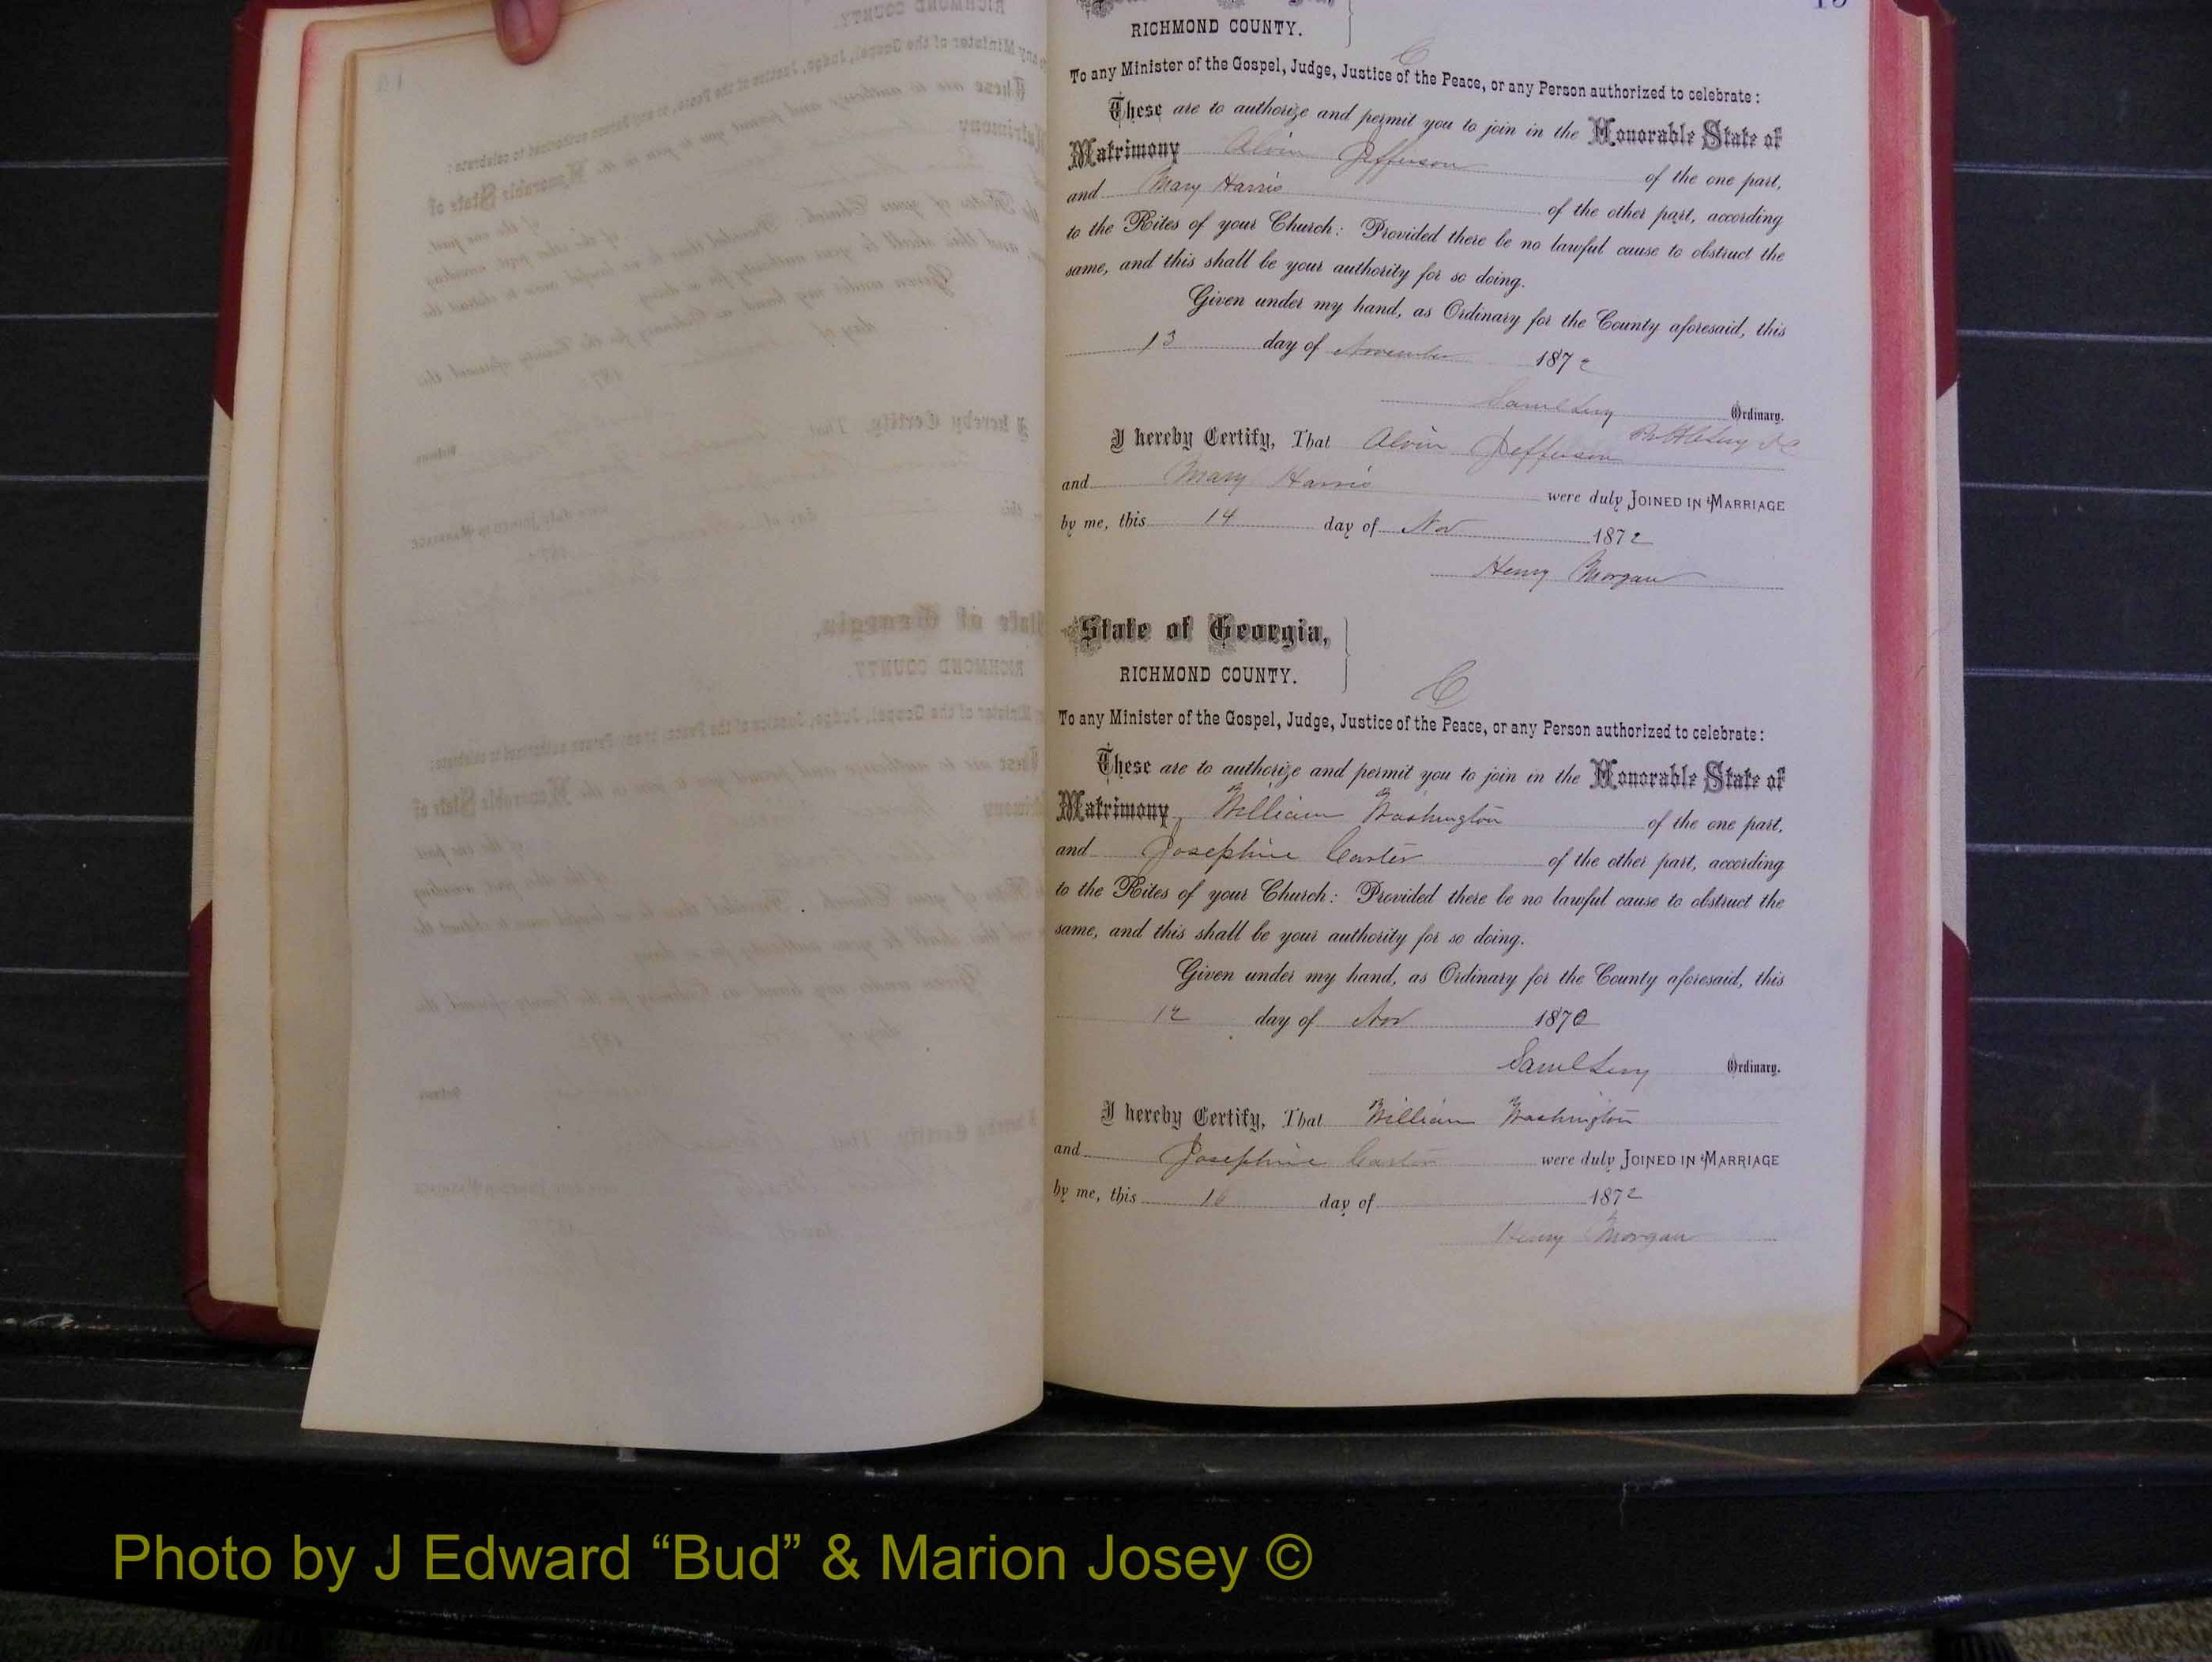 RICHMOND COUNTY.
C
To any Minister of the Gospel, Judge, Justice of the Peace, or any Person authorized to celebrate:
These are to authorize and permit you to join in the Honorable State of
Matrimony Alvin Jefferson of the one part,
and Mary Harris of the other part, according
to the Rites of your Church: Provided there be no lawful cause to obstruct the
same, and this shall be your authority for so doing.
Given under my hand, as Ordinary for the County aforesaid, this
13 day of November 1872
Saml Levy Ordinary.
I hereby Certify, That Alvin Jefferson
and Mary Harris were duly JOINED IN MARRIAGE
by me, this 14 day of Nov 1872
Henry Morgan
State of Georgia,
RICHMOND COUNTY.
C
To any Minister of the Gospel, Judge, Justice of the Peace, or any Person authorized to celebrate:
These are to authorize and permit you to join in the Honorable State of
Matrimony William Washington of the one part,
and Josephine Carter of the other part, according
to the Rites of your Church: Provided there be no lawful cause to obstruct the
same, and this shall be your authority for so doing.
Given under my hand, as Ordinary for the County aforesaid, this
12 day of Nov 1872
Saml Levy Ordinary.
I hereby Certify, That William Washington
and Josephine Carter were duly JOINED IN MARRIAGE
by me, this 16 day of 1872
Henry Morgan
Photo by J Edward “Bud” & Marion Josey ©